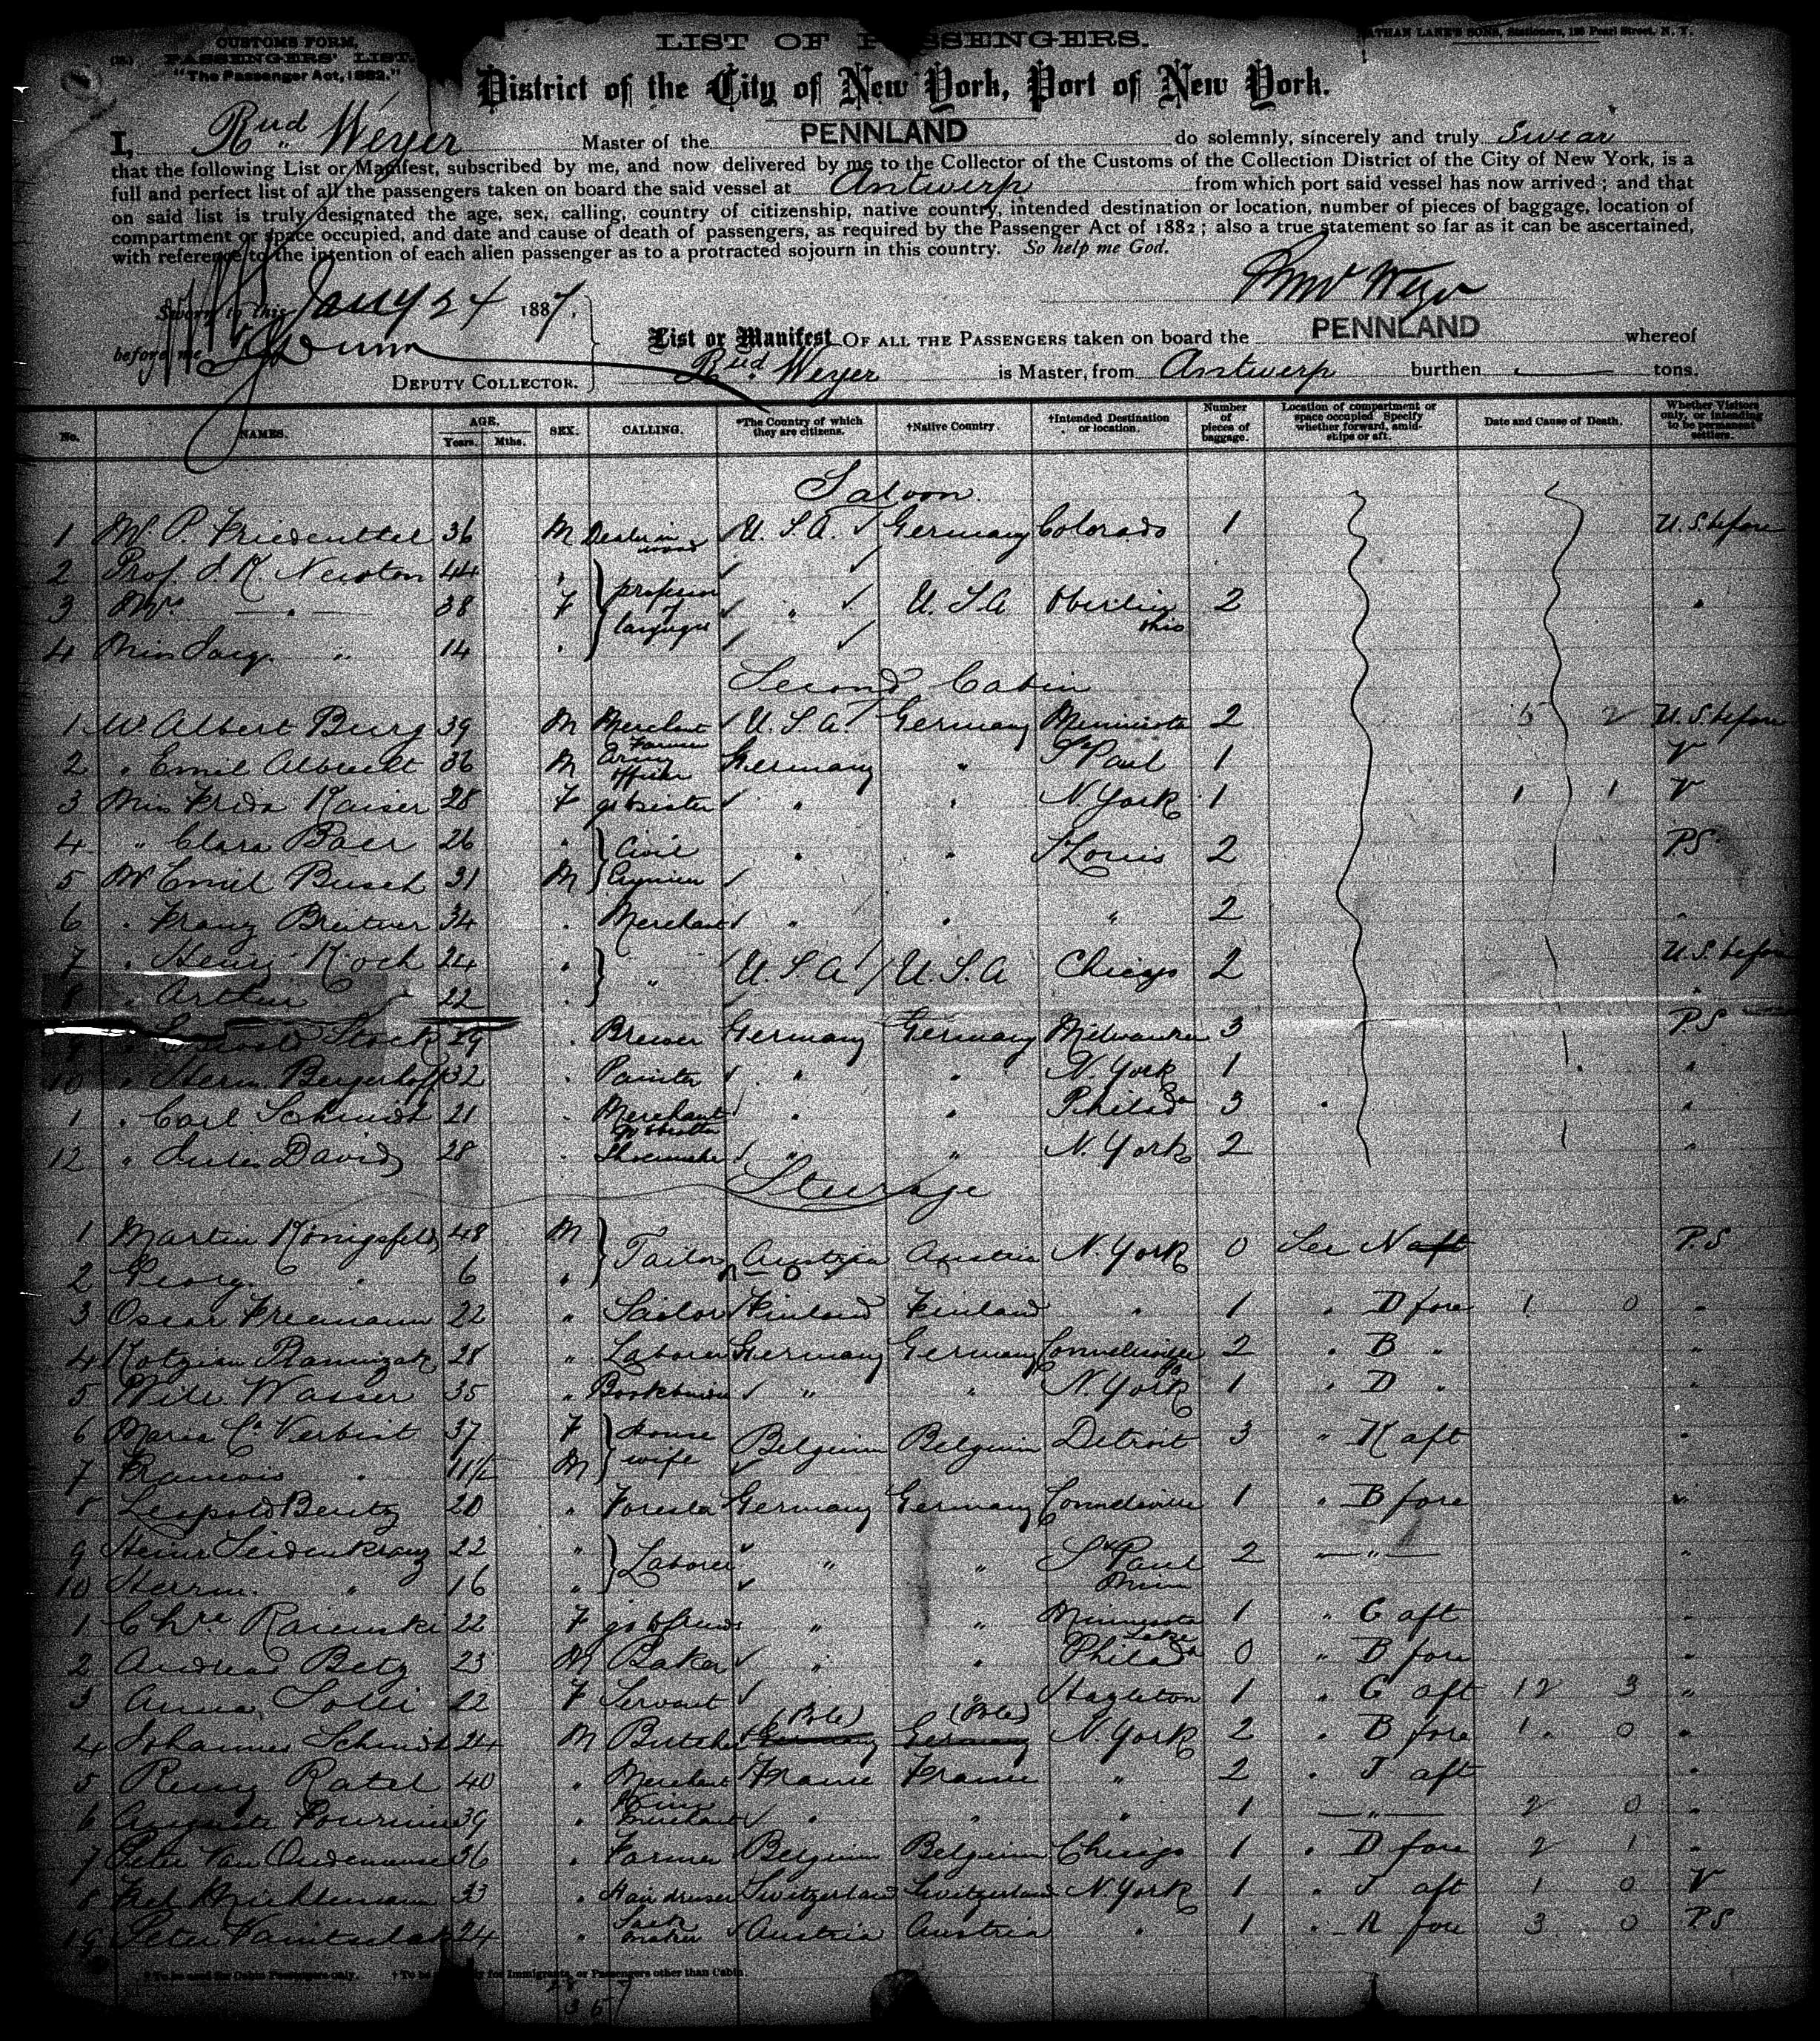 CUSTOMS FORM.
PASSENGERS' LIST.
"The Passenger Act, 1882."
LIST OF PASSENGERS.
NATHAN LANE'S SONS, Stationers, Pearl Street, N. Y.
District of the City of New York, Port of New York.
I, Rud Weyer Master of the PENNLAND do solemnly, sincerely and truly swear
that the following List or Manifest, subscribed by me, and now delivered by me to the Collector of the Customs of the Collection District of the City of New York, is a
full and perfect list of all the passengers taken on board the said vessel at Antwerp from which port said vessel has now arrived; and that
on said list is truly designated the age, sex, calling, country of citizenship, native country, intended destination or location, number of pieces of baggage, location of
compartment or space occupied, and date and cause of death of passengers, as required by the Passenger Act of 1882; also a true statement so far as it can be ascertained,
with reference to the intention of each alien passenger as to a protracted sojourn in this country. So help me God.
Sworn to this Jany 24 1887,
Rud Weyer
before me
List or Manifest OF ALL THE PASSENGERS taken on board the PENNLAND whereof
DEPUTY COLLECTOR.
Rud Weyer is Master, from Antwerp burthen tons.
No. NAMES. AGE. Years. Mths. SEX. CALLING. *The Country of which they are citizens. †Native Country. †Intended Destination or location. Number of pieces of baggage. Location of compartment or space occupied. Specify whether forward, amidships or aft. Date and Cause of Death. Whether Visitors only, or intending to be permanent settlers.
Saloon.
1 Mr. P. Friedenthal 36 M Dealer in wood U. S. A. Germany Colorado 1 U. S. before
2 Prof. J. K. Newton 44 "
3 Mrs. — " — 38 F professor of languages " U. S. A Oberlin Ohio 2 "
4 Miss " 14 "
Second Cabin
1 Mr Albert Burg 39 M Merchant U. S. A. Germany Minnesota 2 5 2 U. S. before
2 " Emil Albrecht 36 M Former Army Officer Germany " St Paul 1 V
3 Miss Frida Kaiser 28 F " " N. York 1 1 1 V
4 " Clara Baer 26 " Civil " " St Louis 2 P.S.
5 Mr Emil Busch 31 M Engineer
6 " Franz 34 " Merchant " " " 2 "
7 " Henry Koch 24 " " U. S. A. U. S. A Chicago 2 U. S. before
8 " Arthur 22 " "
9 " Stock 29 " Brewer Germany Germany Milwaukee 3 P.S
10 " Herm. Bergerhoff 32 " Painter " " N. York 1 "
1 " Carl Schmidt 21 " Merchant " " Philada 3 "
12 " Jules David 28 " Shoemaker " " N. York 2 "
Steerage
1 Martin Königsfeld 48 M Tailor Austria Austria N. York 0 See N aft P.S
2 Georg " 6 "
3 Oscar Freemann 22 " Sailor Finland Finland " 1 " D fore 1 0 "
4 28 " Laborer Germany Germany Connellsville Pa 2 " B " "
5 Will. Wasser 35 " Bookbinder " " N. York 1 " D " "
6 Maria Ca Verbist 37 F House wife Belgium Belgium Detroit 3 " K aft "
7 Francois " 11½ M
8 Leopold Bentz 20 " Forester Germany Germany Connellsville 1 " B fore "
9 Heinr Seidenkranz 22 " Laborer " " St Paul Minn 2 — " — "
10 Herrm. " 16 "
1 Chre. 22 F " " Minnesota Lake 1 " C aft "
2 Andreas Betz 23 M Baker " " Philada 0 " B fore "
3 Anna 22 F Servant " Hazleton 1 " C aft 12 3 "
4 Johannes Schmidt 24 M Butcher Germany Germany N. York 2 " B fore 1 0 "
5 Remy Ratel 40 " Merchant France France " 2 " J aft "
6 Auguste 39 " Wine merchant " " " 1 — " — 2 0 "
7 Peter Van 36 " Farmer Belgium Belgium Chicago 1 " D fore 2 1 "
8 33 " Hairdresser Switzerland Switzerland N. York 1 " J aft 1 0 V
19 Peter 24 " Austria Austria " 1 " A fore 3 0 P.S
* To be used for Cabin Passengers only. † To be for Immigrants, or Passengers other than Cabin.